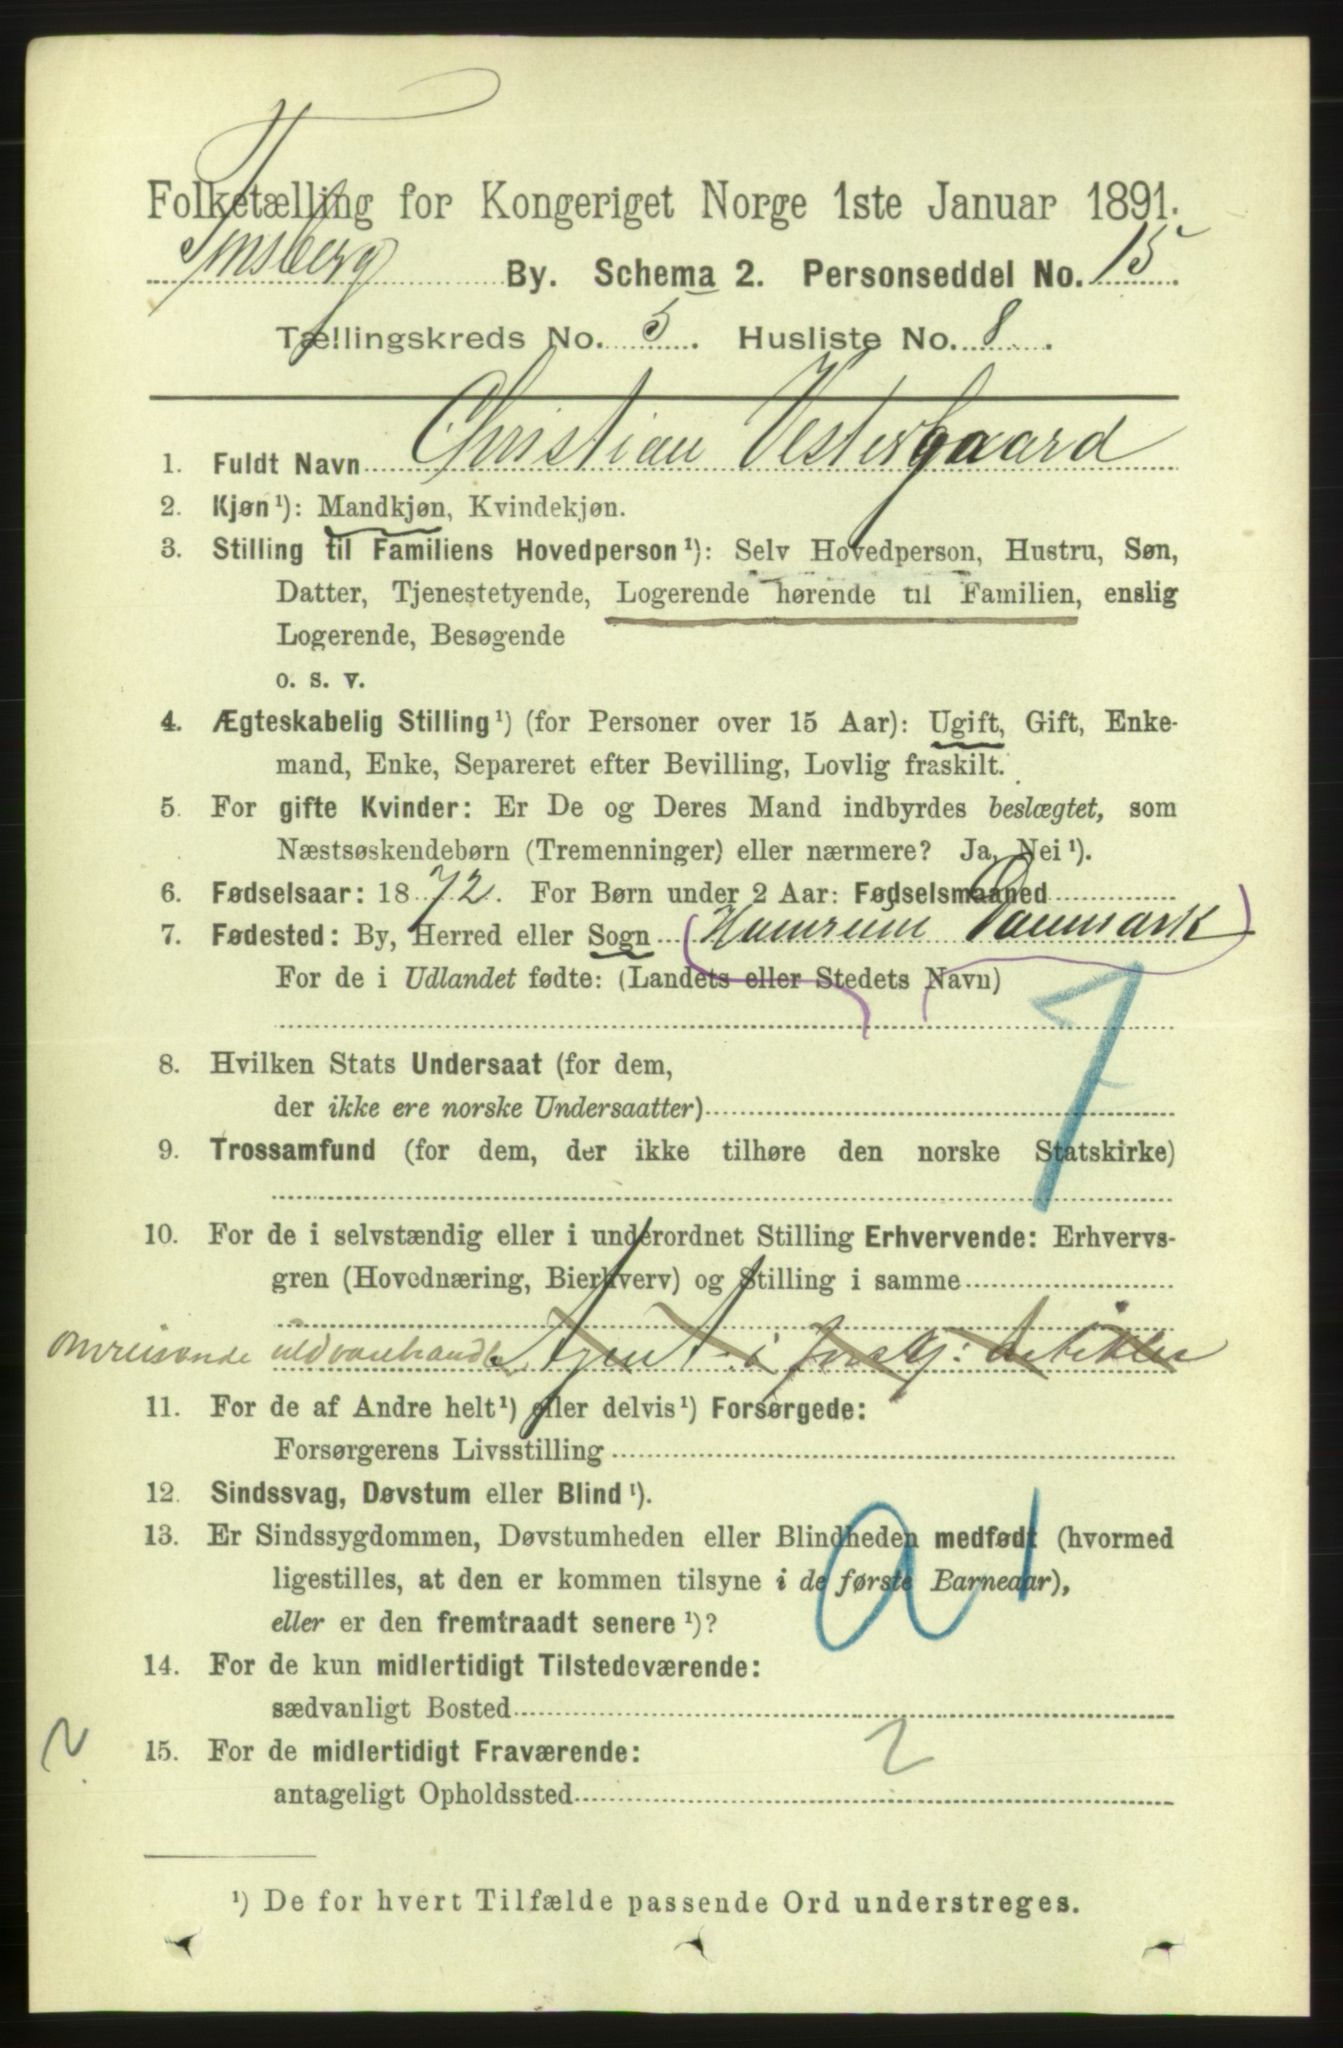 Folketælling for Kongeriget Norge 1ste Januar 1891.
Tønsberg By. Schema 2. Personseddel No. 15.
Tællingskreds No. 5. Husliste No. 8.
1. Fuldt Navn Christian Vestergaard
2. Kjøn¹): Mandkjøn, Kvindekjøn.
3. Stilling til Familiens Hovedperson¹): Selv Hovedperson, Hustru, Søn,
Datter, Tjenestetyende, Logerende hørende til Familien, enslig
Logerende, Besøgende
o. s. v.
4. Ægteskabelig Stilling¹) (for Personer over 15 Aar): Ugift, Gift, Enke-
mand, Enke, Separeret efter Bevilling, Lovlig fraskilt.
5. For gifte Kvinder: Er De og Deres Mand indbyrdes beslægtet, som
Næstsøskendebørn (Tremenninger) eller nærmere? Ja, Nei¹).
6. Fødselsaar: 1872. For Børn under 2 Aar: Fødselsmaaned
7. Fødested: By, Herred eller Sogn Danmark
For de i Udlandet fødte: (Landets eller Stedets Navn)
7
8. Hvilken Stats Undersaat (for dem,
der ikke ere norske Undersaatter)
9. Trossamfund (for dem, der ikke tilhøre den norske Statskirke)
10. For de i selvstændig eller i underordnet Stilling Erhvervende: Erhvervs-
gren (Hovednæring, Bierhverv) og Stilling i samme
omreisende uldvarehandler Agent i forskj: Artikler
11. For de af Andre helt¹) eller delvis¹) Forsørgede:
Forsørgerens Livsstilling
12. Sindssvag, Døvstum eller Blind¹).
13. Er Sindssygdommen, Døvstumheden eller Blindheden medfødt (hvormed
ligestilles, at den er kommen tilsyne i de første Barneaar),
eller er den fremtraadt senere¹)?
a 1
14. For de kun midlertidigt Tilstedeværende:
sædvanligt Bosted
2
15. For de midlertidigt Fraværende:
antageligt Opholdssted
¹) De for hvert Tilfælde passende Ord understreges.